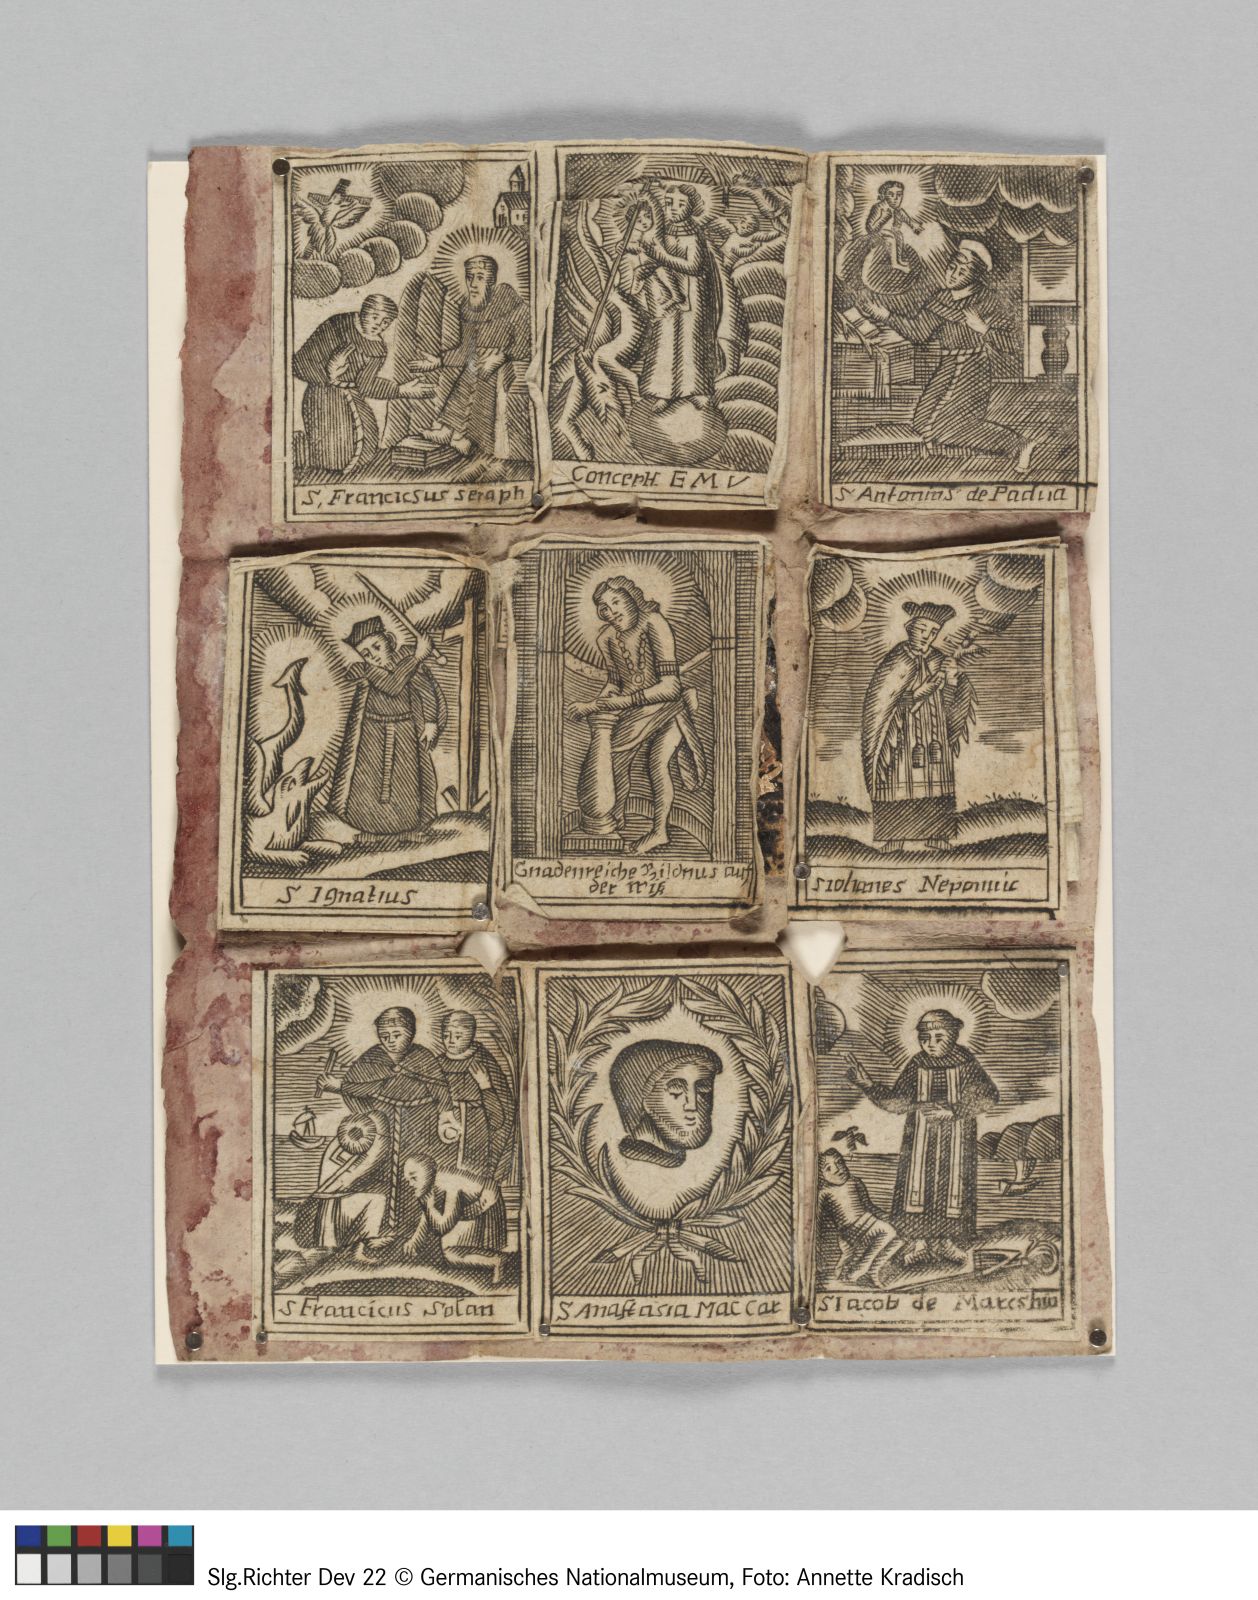 S, Francicsus seraph
Concept. E M V
S Antonius de Padua
S Ignatius
Gnadenreiche Bildnus auf
der Wis
S Iohanes Nepomuc
S Francicus Solan
S Anastasia Mac Car
S Iacob de Marchia
Slg.Richter Dev 22 © Germanisches Nationalmuseum, Foto: Annette Kradisch